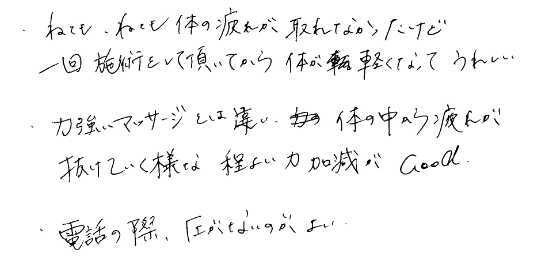 ・ねても、ねても体の疲れが取れなかったけど
一回施術をして頂いてから体が軽くなってうれしい
・力強いマッサージとは違い、体の中から疲れが
抜けていく様な程よい力加減がGood.
・電話の際、圧がないのがよい.